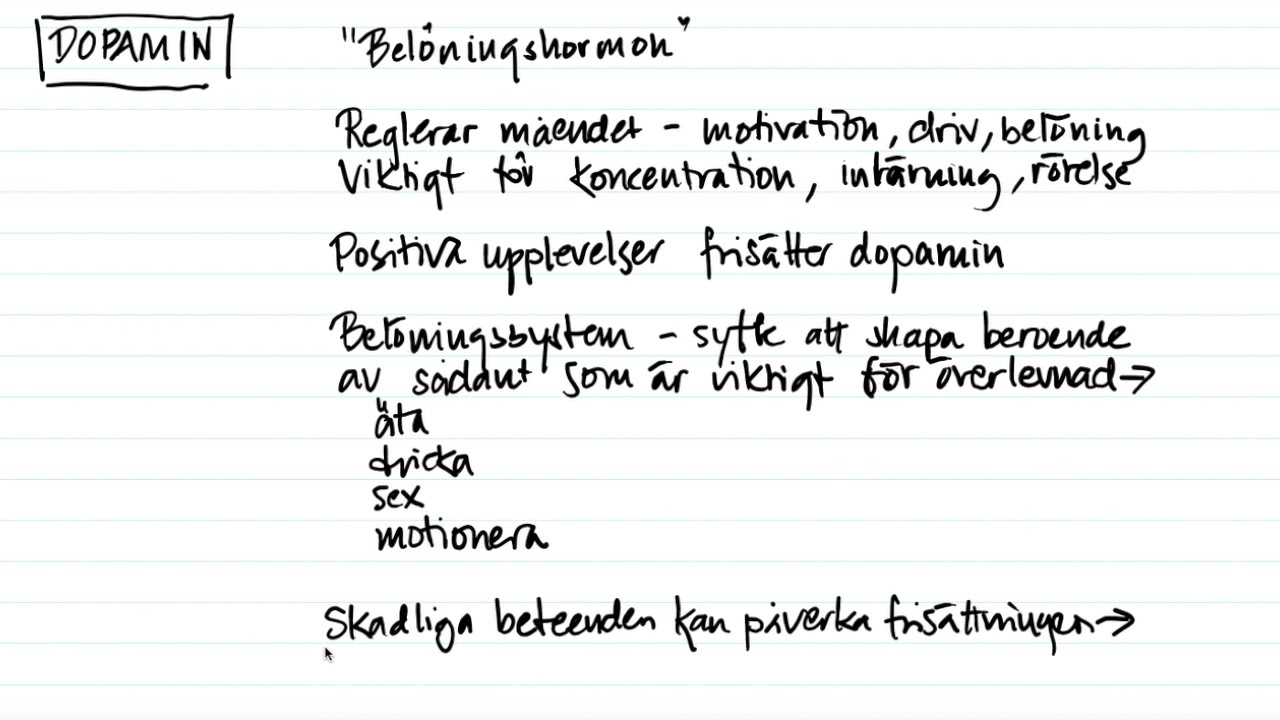 DOPAMIN "Belöningshormon"
Reglerar måendet - motivation, driv, belöning
Viktigt för koncentration, inlärning, rörelse
Positiva upplevelser frisätter dopamin
Belöningssystem - syfte att skapa beroende
av sådant som är viktigt för överlevnad →
äta
dricka
sex
motionera
Skadliga beteenden kan påverka frisättningen →